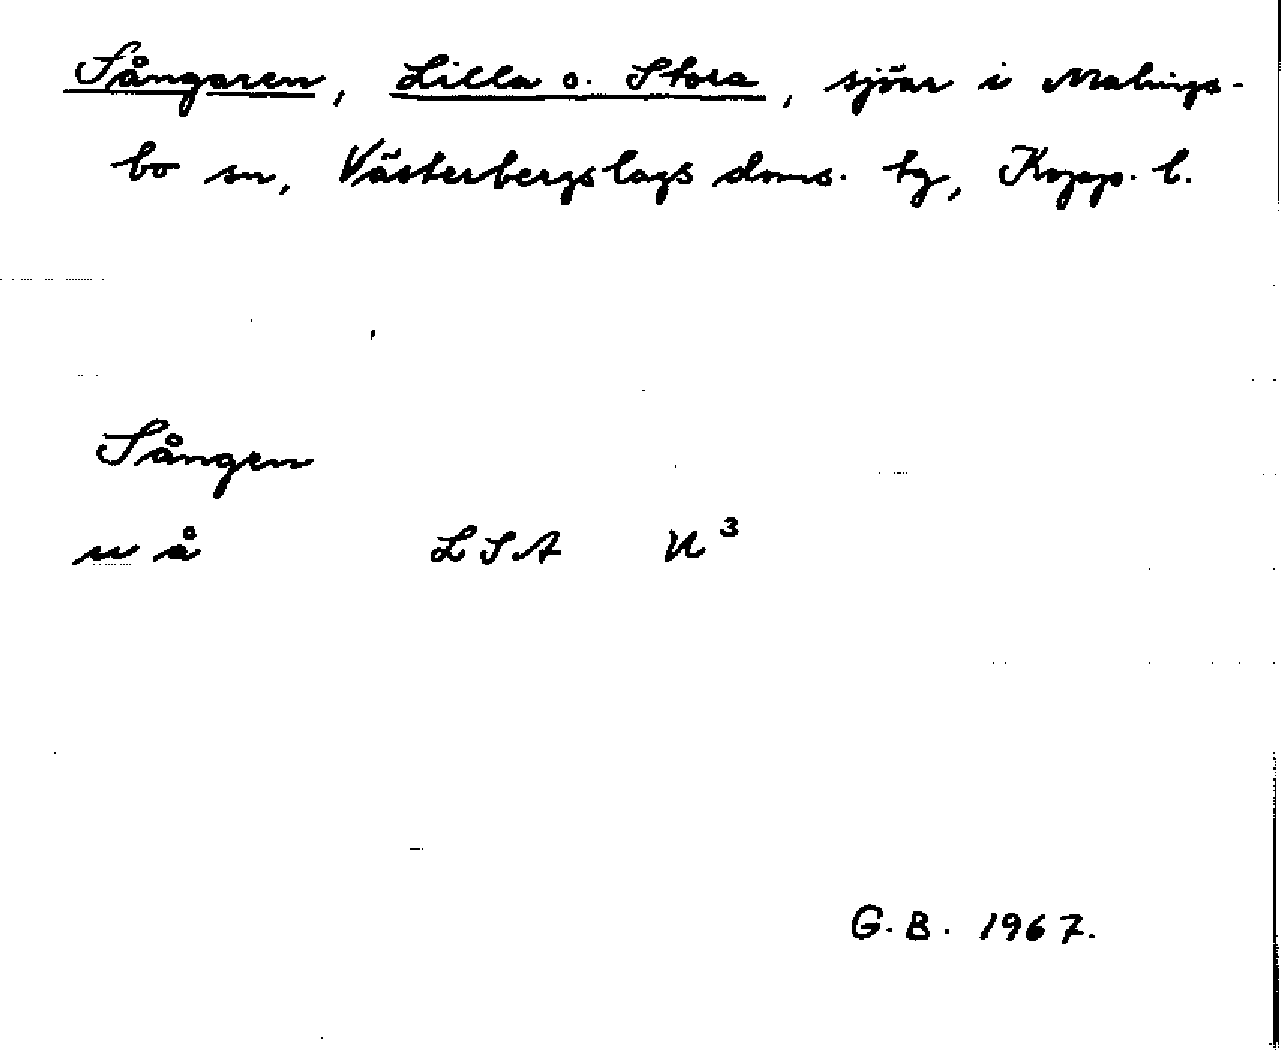 Sångaren, Lilla o. Stora, sjöar i Malings-
bo sn, Västerbergslags doms. tg, Kopp. l.
Sången
u å LSA U³
G.B. 1967.